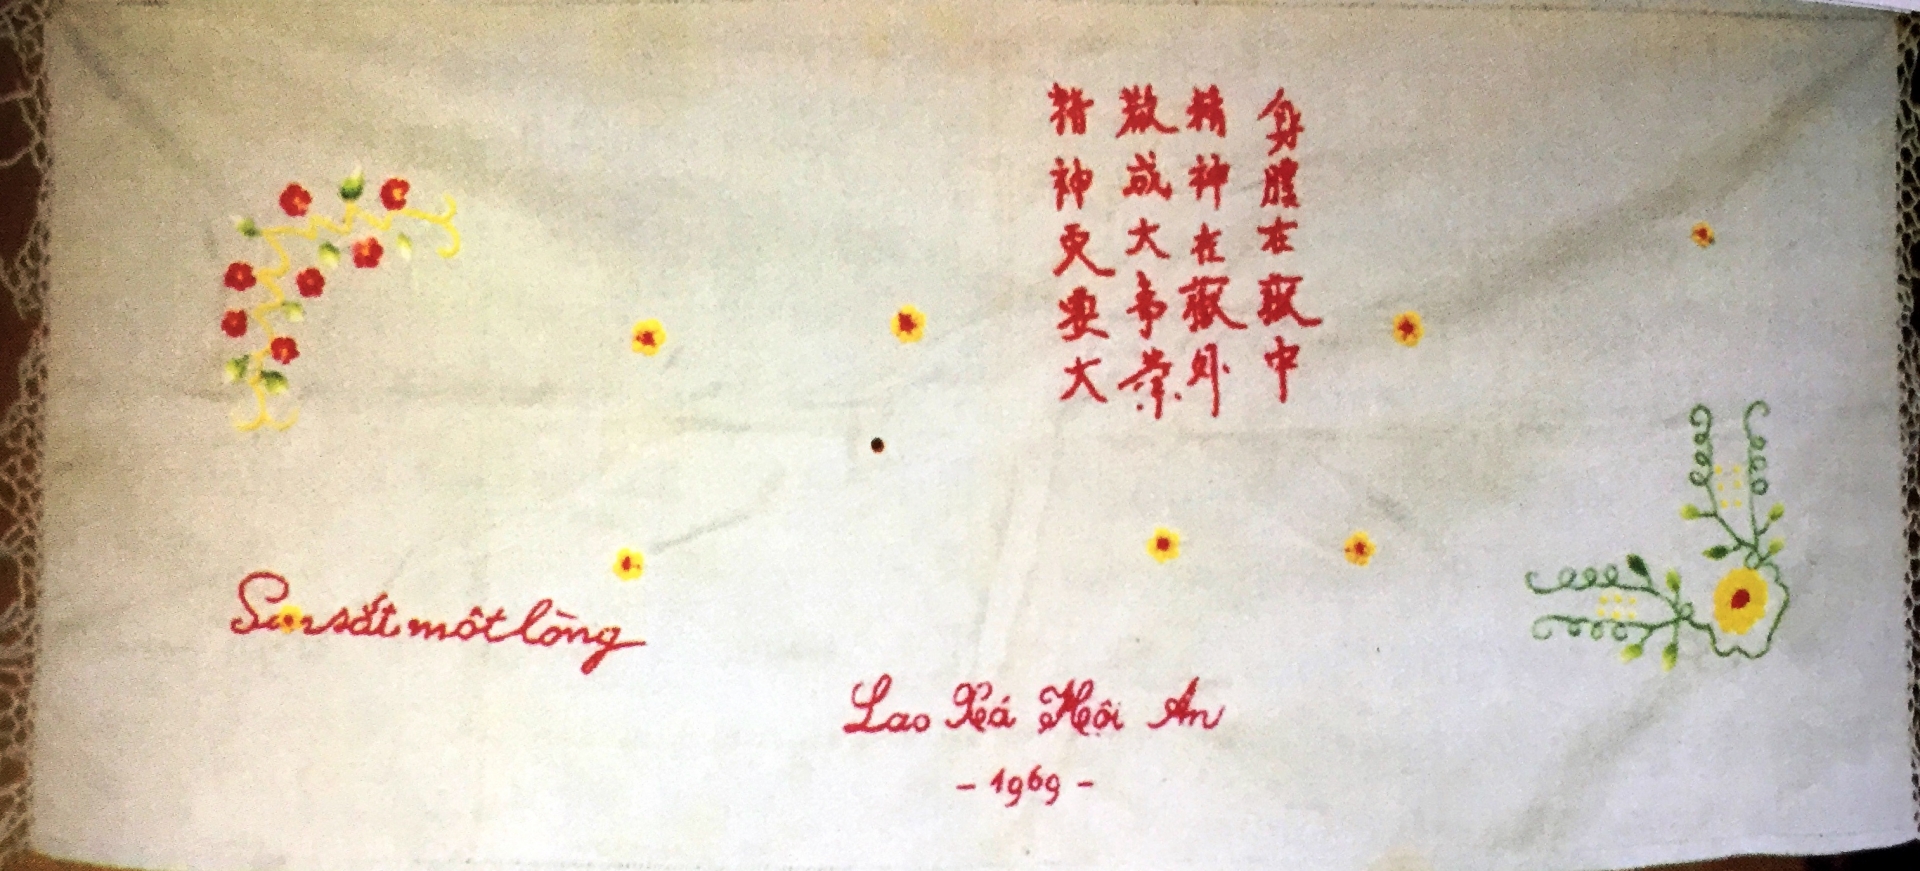 身體在獄中
精神在獄外
欲成大事業
精神更要大
Son sắt môt lòng
Lao Xá Hội An
- 1969 -